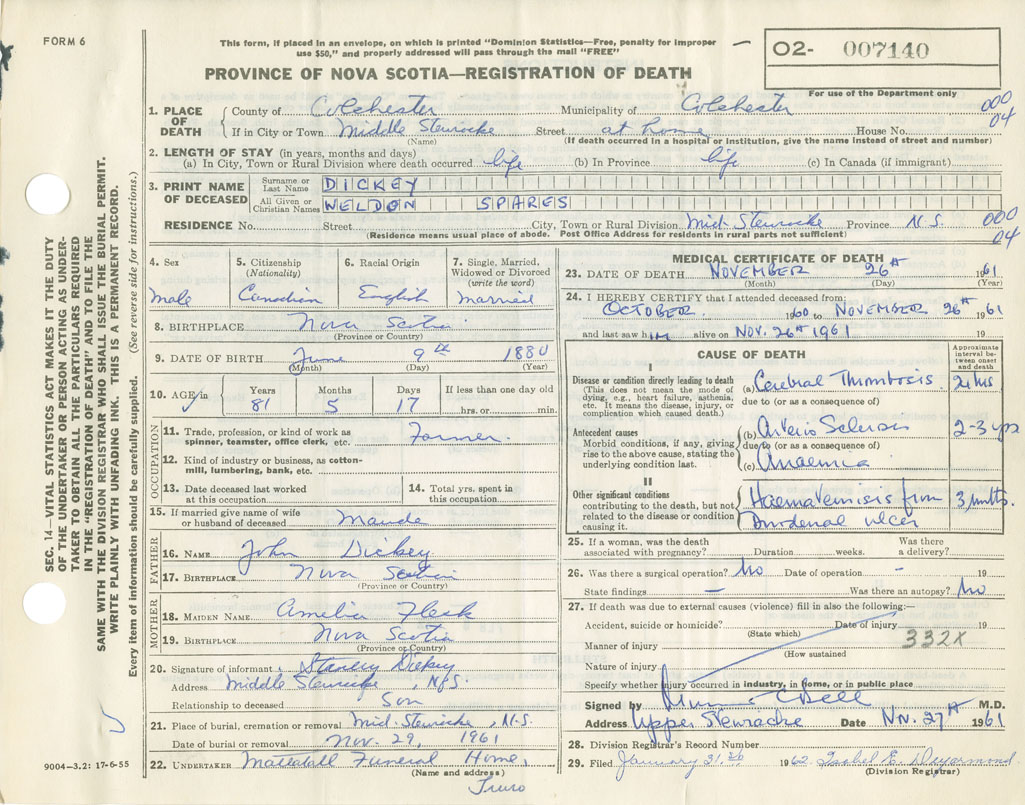 FORM 6
This form, if placed in an envelope, on which is printed "Dominion Statistics—Free, penalty for improper
use $50," and properly addressed will pass through the mail "FREE"
O2- 007140
For use of the Department only
PROVINCE OF NOVA SCOTIA—REGISTRATION OF DEATH
1. PLACE OF DEATH County of Colchester Municipality of Colchester 000
If in City or Town Middle Stewiacke Street at home House No. 04
(Name) (If death occurred in a hospital or institution, give the name instead of street and number)
2. LENGTH OF STAY (in years, months and days)
(a) In City, Town or Rural Division where death occurred life (b) In Province life (c) In Canada (if immigrant)
3. PRINT NAME OF DECEASED Surname or Last Name DICKEY
All Given or Christian Names WELDON SPARES
RESIDENCE No. Street City, Town or Rural Division Mid. Stewiacke Province N.S. 000
(Residence means usual place of abode. Post Office Address for residents in rural parts not sufficient) 04
4. Sex Male
5. Citizenship (Nationality) Canadian
6. Racial Origin English
7. Single, Married, Widowed or Divorced (write the word) Married
8. BIRTHPLACE Nova Scotia
(Province or Country)
9. DATE OF BIRTH June 9th 1880
(Month) (Day) (Year)
10. AGE in Years 81 Months 5 Days 17 If less than one day old hrs. or min.
OCCUPATION
11. Trade, profession, or kind of work as spinner, teamster, office clerk, etc. Farmer.
12. Kind of industry or business, as cotton-mill, lumbering, bank, etc.
13. Date deceased last worked at this occupation
14. Total yrs. spent in this occupation
15. If married give name of wife or husband of deceased Maude
FATHER
16. NAME John Dickey
17. BIRTHPLACE Nova Scotia
(Province or Country)
MOTHER
18. MAIDEN NAME Amelia Fleck
19. BIRTHPLACE Nova Scotia
(Province or Country)
20. Signature of informant Stanley Dickey
Address Middle Stewiacke, N.S.
Relationship to deceased Son
21. Place of burial, cremation or removal Mid. Stewiacke, N.S.
Date of burial or removal Nov. 29, 1961
22. UNDERTAKER Mattatall Funeral Home,
(Name and address)
Truro
MEDICAL CERTIFICATE OF DEATH
23. DATE OF DEATH NOVEMBER 26th 1961
(Month) (Day) (Year)
24. I HEREBY CERTIFY that I attended deceased from:
OCTOBER 1960 to NOVEMBER 26th 1961
and last saw him alive on NOV. 26th 1961 19
CAUSE OF DEATH
Approximate interval between onset and death
I
Disease or condition directly leading to death
(This does not mean the mode of dying, e.g., heart failure, asthenia, etc. It means the disease, injury, or complication which caused death.)
(a) Cerebral Thrombosis 2 hrs
due to (or as a consequence of)
Antecedent causes
Morbid conditions, if any, giving rise to the above cause, stating the underlying condition last.
(b) Arterio Sclerosis 2-3 yrs
due to (or as a consequence of)
(c) Anaemia
II
Other significant conditions
contributing to the death, but not related to the disease or condition causing it.
Haematemisis from 3 mnths.
Duodenal ulcer
25. If a woman, was the death associated with pregnancy? Duration weeks. Was there a delivery?
26. Was there a surgical operation? No Date of operation – 19
State findings — Was there an autopsy? No
27. If death was due to external causes (violence) fill in also the following:—
Accident, suicide or homicide? Date of injury 19
(State which)
Manner of injury 332X
(How sustained
Nature of injury
Specify whether injury occurred in industry, in home, or in public place
Signed by M.D.
Address Upper Stewiacke Date Nov. 27th 1961
28. Division Registrar's Record Number
29. Filed January 31, 1962 Isabel E. Deyarmond
(Division Registrar)
SEC. 14—VITAL STATISTICS ACT MAKES IT THE DUTY
OF THE UNDERTAKER OR PERSON ACTING AS UNDER-
TAKER TO OBTAIN ALL THE PARTICULARS REQUIRED
IN THE "REGISTRATION OF DEATH" AND TO FILE THE
SAME WITH THE DIVISION REGISTRAR WHO SHALL ISSUE THE BURIAL PERMIT.
WRITE PLAINLY WITH UNFADING INK. THIS IS A PERMANENT RECORD.
Every item of information should be carefully supplied. (See reverse side for instructions.)
9004-3.2: 17-6-55